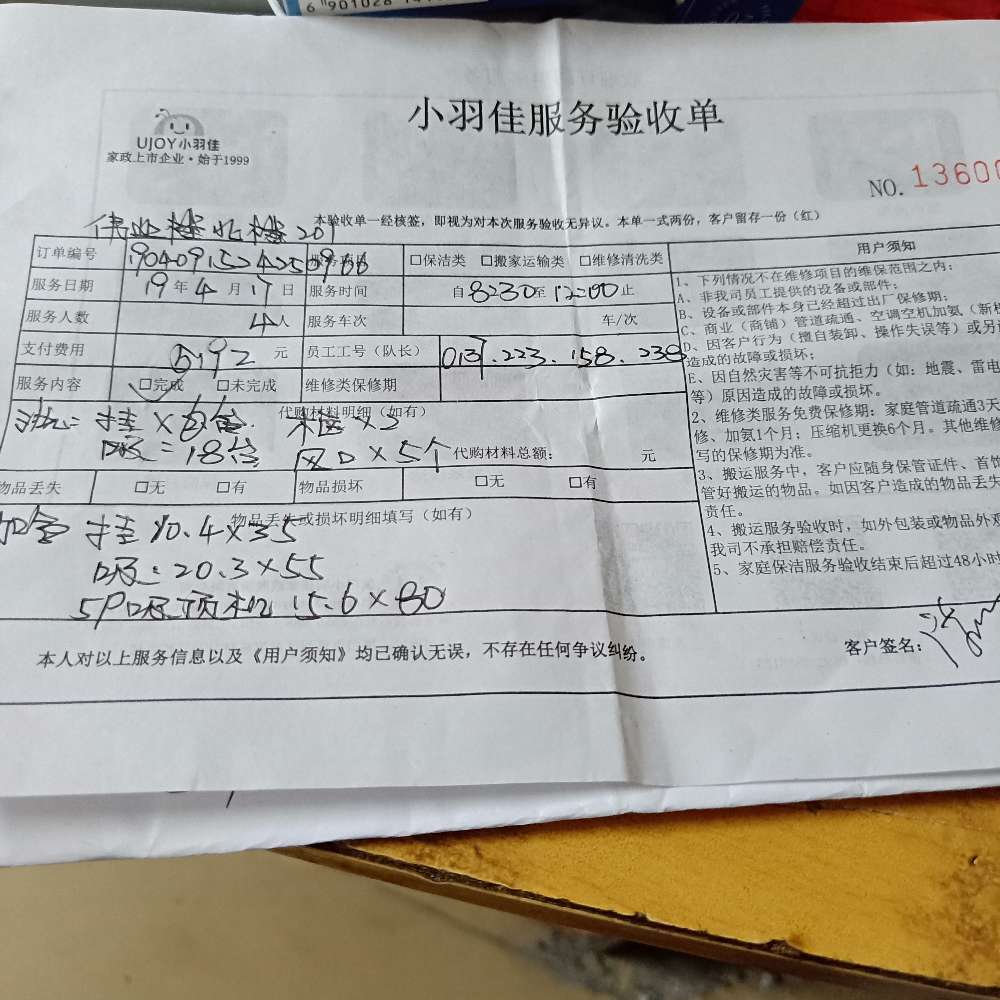 6 901028
小羽佳服务验收单
UJOY小羽佳
家政上市企业·始于1999
NO. 13600
本验收单一经核签，即视为对本次服务验收无异议。本单一式两份，客户留存一份（红）
订单编号 □保洁类 □搬家运输类 □维修清洗类
服务日期 19年4月17日 服务时间 自8:30至12:00止
服务人数 4人 服务车次 车/次
支付费用 元 员工工号（队长） 013.223.158.238
服务内容 □完成 □未完成 维修类保修期
代购材料明细（如有）
挂×6台 柜×3
吸=18台 风口×5个 代购材料总额： 元
物品丢失 □无 □有 物品损坏 □无 □有
物品丢失或损坏明细填写（如有）
加氟 挂 10.4×35
吸：20.3×55
5P吸顶机 15.6×80
用户须知
1、下列情况不在维修项目的维保范围之内：
A、非我司员工提供的设备或部件；
B、设备或部件本身已经超过出厂保修期；
C、商业（商铺）管道疏通、空调空机加氨（新机
D、因客户行为（擅自装卸、操作失误等）或另
造成的故障或损坏；
E、因自然灾害等不可抗拒力（如：地震、雷电
等）原因造成的故障或损坏。
2、维修类服务免费保修期：家庭管道疏通3天
修、加氨1个月；压缩机更换6个月。其他维修
写的保修期为准。
3、搬运服务中，客户应随身保管证件、首饰
管好搬运的物品。如因客户造成的物品丢失
责任。
4、搬运服务验收时，如外包装或物品外观
我司不承担赔偿责任。
5、家庭保洁服务验收结束后超过48小时
本人对以上服务信息以及《用户须知》均已确认无误，不存在任何争议纠纷。
客户签名：